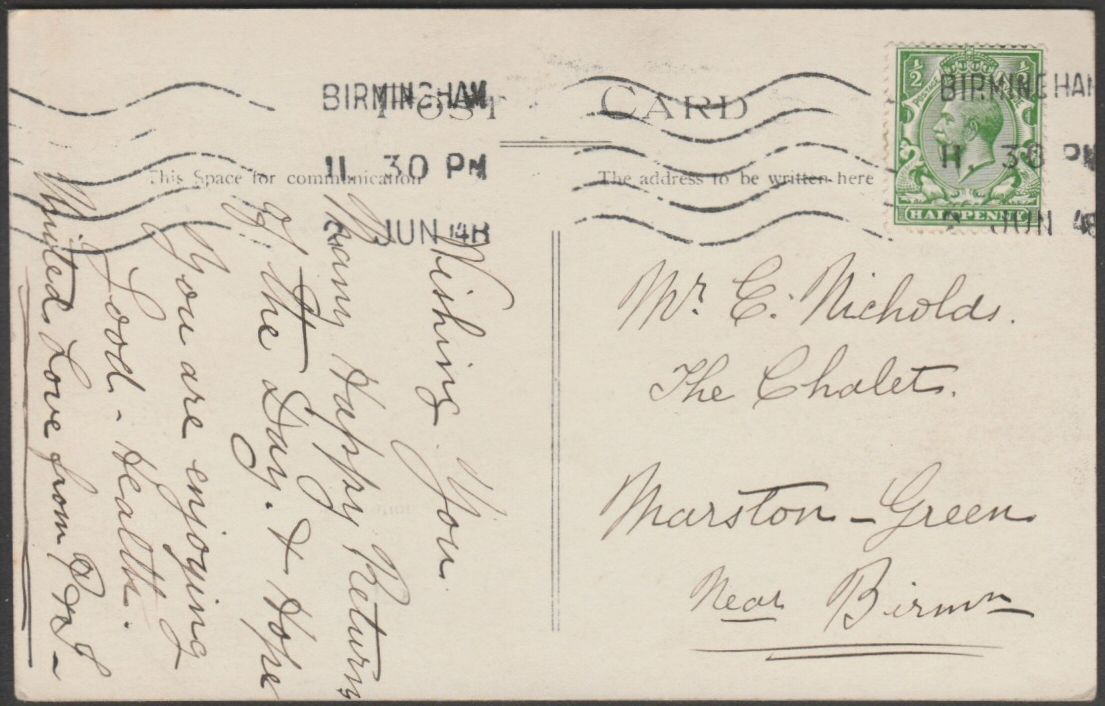 POST CARD
BIRMINGHAM
11. 30 PM
2 JUN 14
BIRMINGHAM
11 30 PM
2 JUN
½ ½
POSTAGE
HALFPENNY
This Space for communication
The address to be written here
Wishing You
Many Happy Return
of the Day. & Hope
You are enjoying
Good - Health.
United Love from
Mr. E. Nicholds.
The Chalets.
Marston - Green
Near Birmn